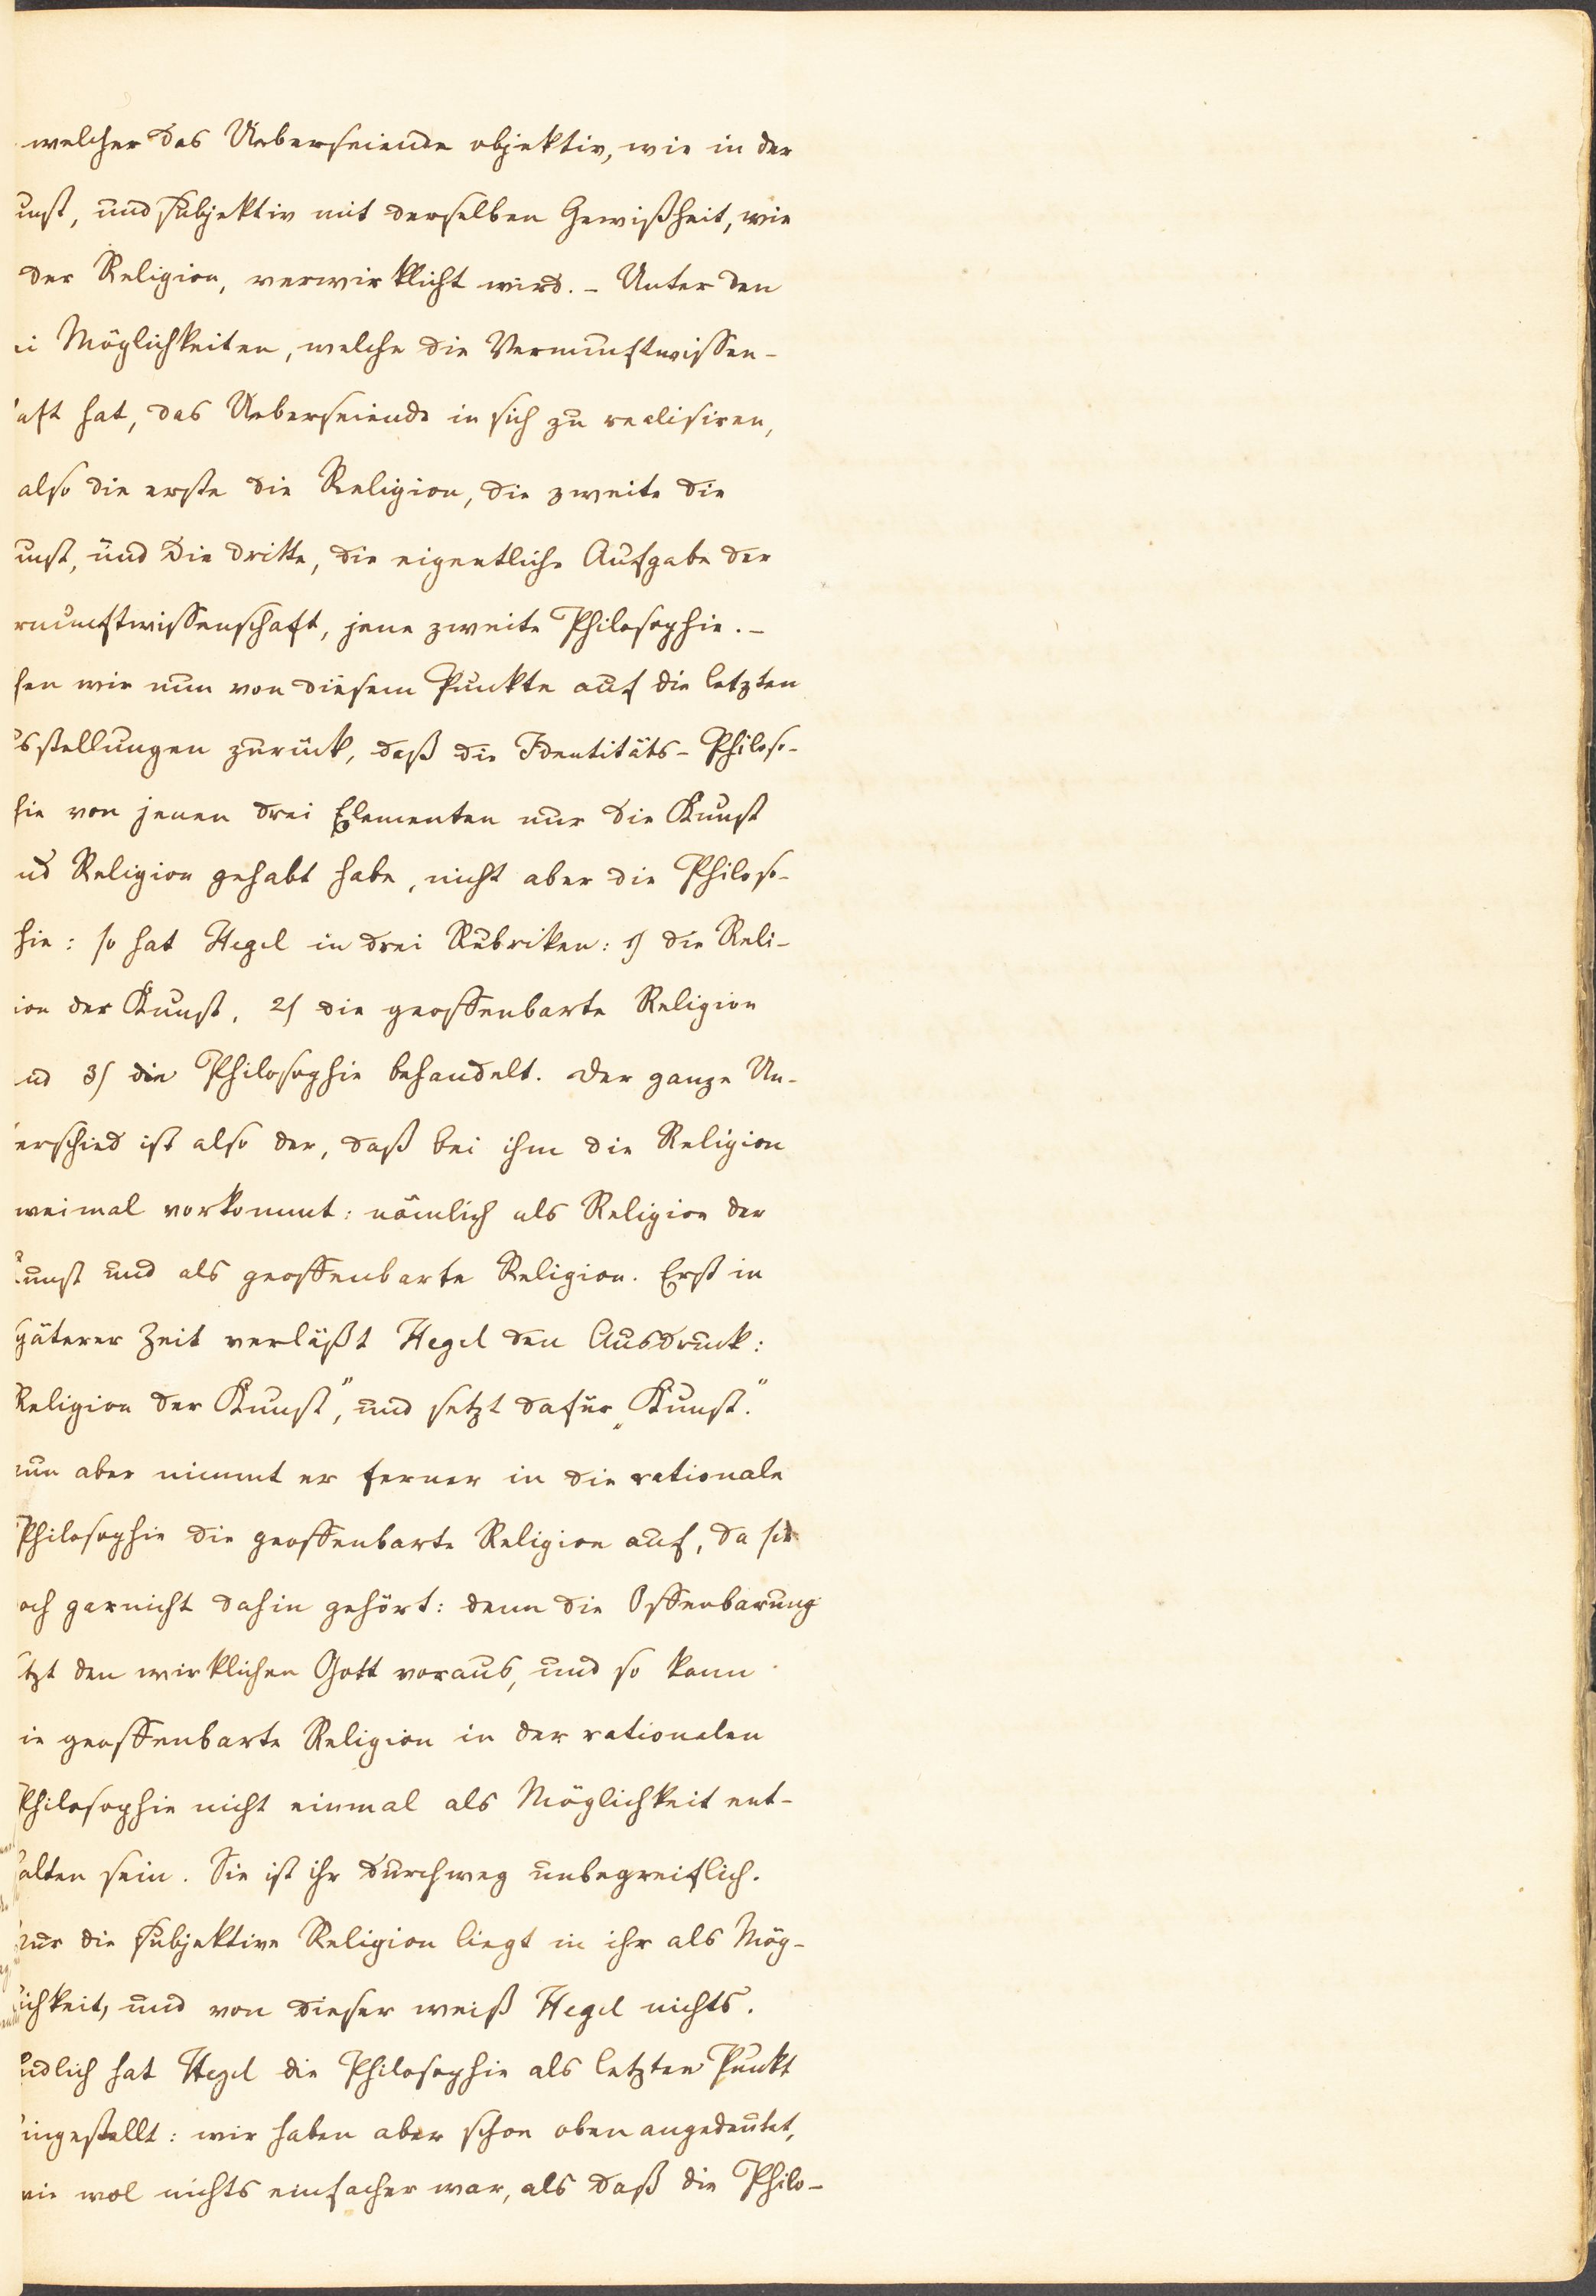 welcher das Ueberseiende objektiv, wie in der
unst, und subjektiv mit derselben Gewißheit, wie
der Religion, verwirklicht wird. – Unter den
ei Möglichkeiten, welche die Vernunftwissen-
aft hat, das Ueberseiende in sich zu realisiren,
also die erste die Religion, die zweite die
unst, und die dritte, die eigentliche Aufgabe der
rnunftwissenschaft, jene zweite Philosophie. –
hen wir nun von diesem Punkte auf die letzten
sstellungen zurück, daß die Identitäts-Philoso-
hie von jenen drei Elementen nur die Kunst
nd Religion gehabt habe, nicht aber die Philoso-
hie: so hat Hegel in drei Rubriken: 1) die Reli-
ion der Kunst, 2) die geoffenbarte Religion
nd 3) die Philosophie behandelt. Der ganze Un-
erschied ist also der, daß bei ihm die Religion
weimal vorkommt: nämlich als Religion der
unst und als geoffenbarte Religion. Erst in
päterer Zeit verläßt Hegel den Ausdruck:
Religion der Kunst", und setzt dafür „Kunst."
un aber nimmt er ferner in die rationale
Philosophie die geoffenbarte Religion auf, da sie
och garnicht dahin gehört: denn die Offenbarung
tzt den wirklichen Gott voraus, und so kann
ie geoffenbarte Religion in der rationalen
Philosophie nicht einmal als Möglichkeit ent-
alten sein. Sie ist ihr durchweg unbegreiflich.
ur die subjektive Religion liegt in ihr als Mög-
ichkeit, und von dieser weiß Hegel nichts.
ndlich hat Hegel die Philosophie als letzten Punkt
ingestellt: wir haben aber schon oben angedeutet,
wie wol nichts einfacher war, als daß die Philo-